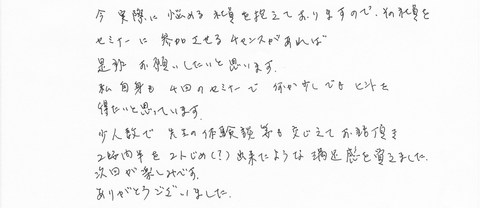 今 実際に 悩める 社員を抱えておりますので、その社員を
セミナーに 参加させるチャンスがあれば
是非 お願いしたいと思います。
私自身も 4回のセミナーで 何か少しでも ヒントを
得たいと思っています。
少人数で 先生の体験談等も交じえてお話頂き
2時間半を 2人じめ(?)出来たような 満足感を覚えました。
次回が楽しみです。
ありがとうございました。